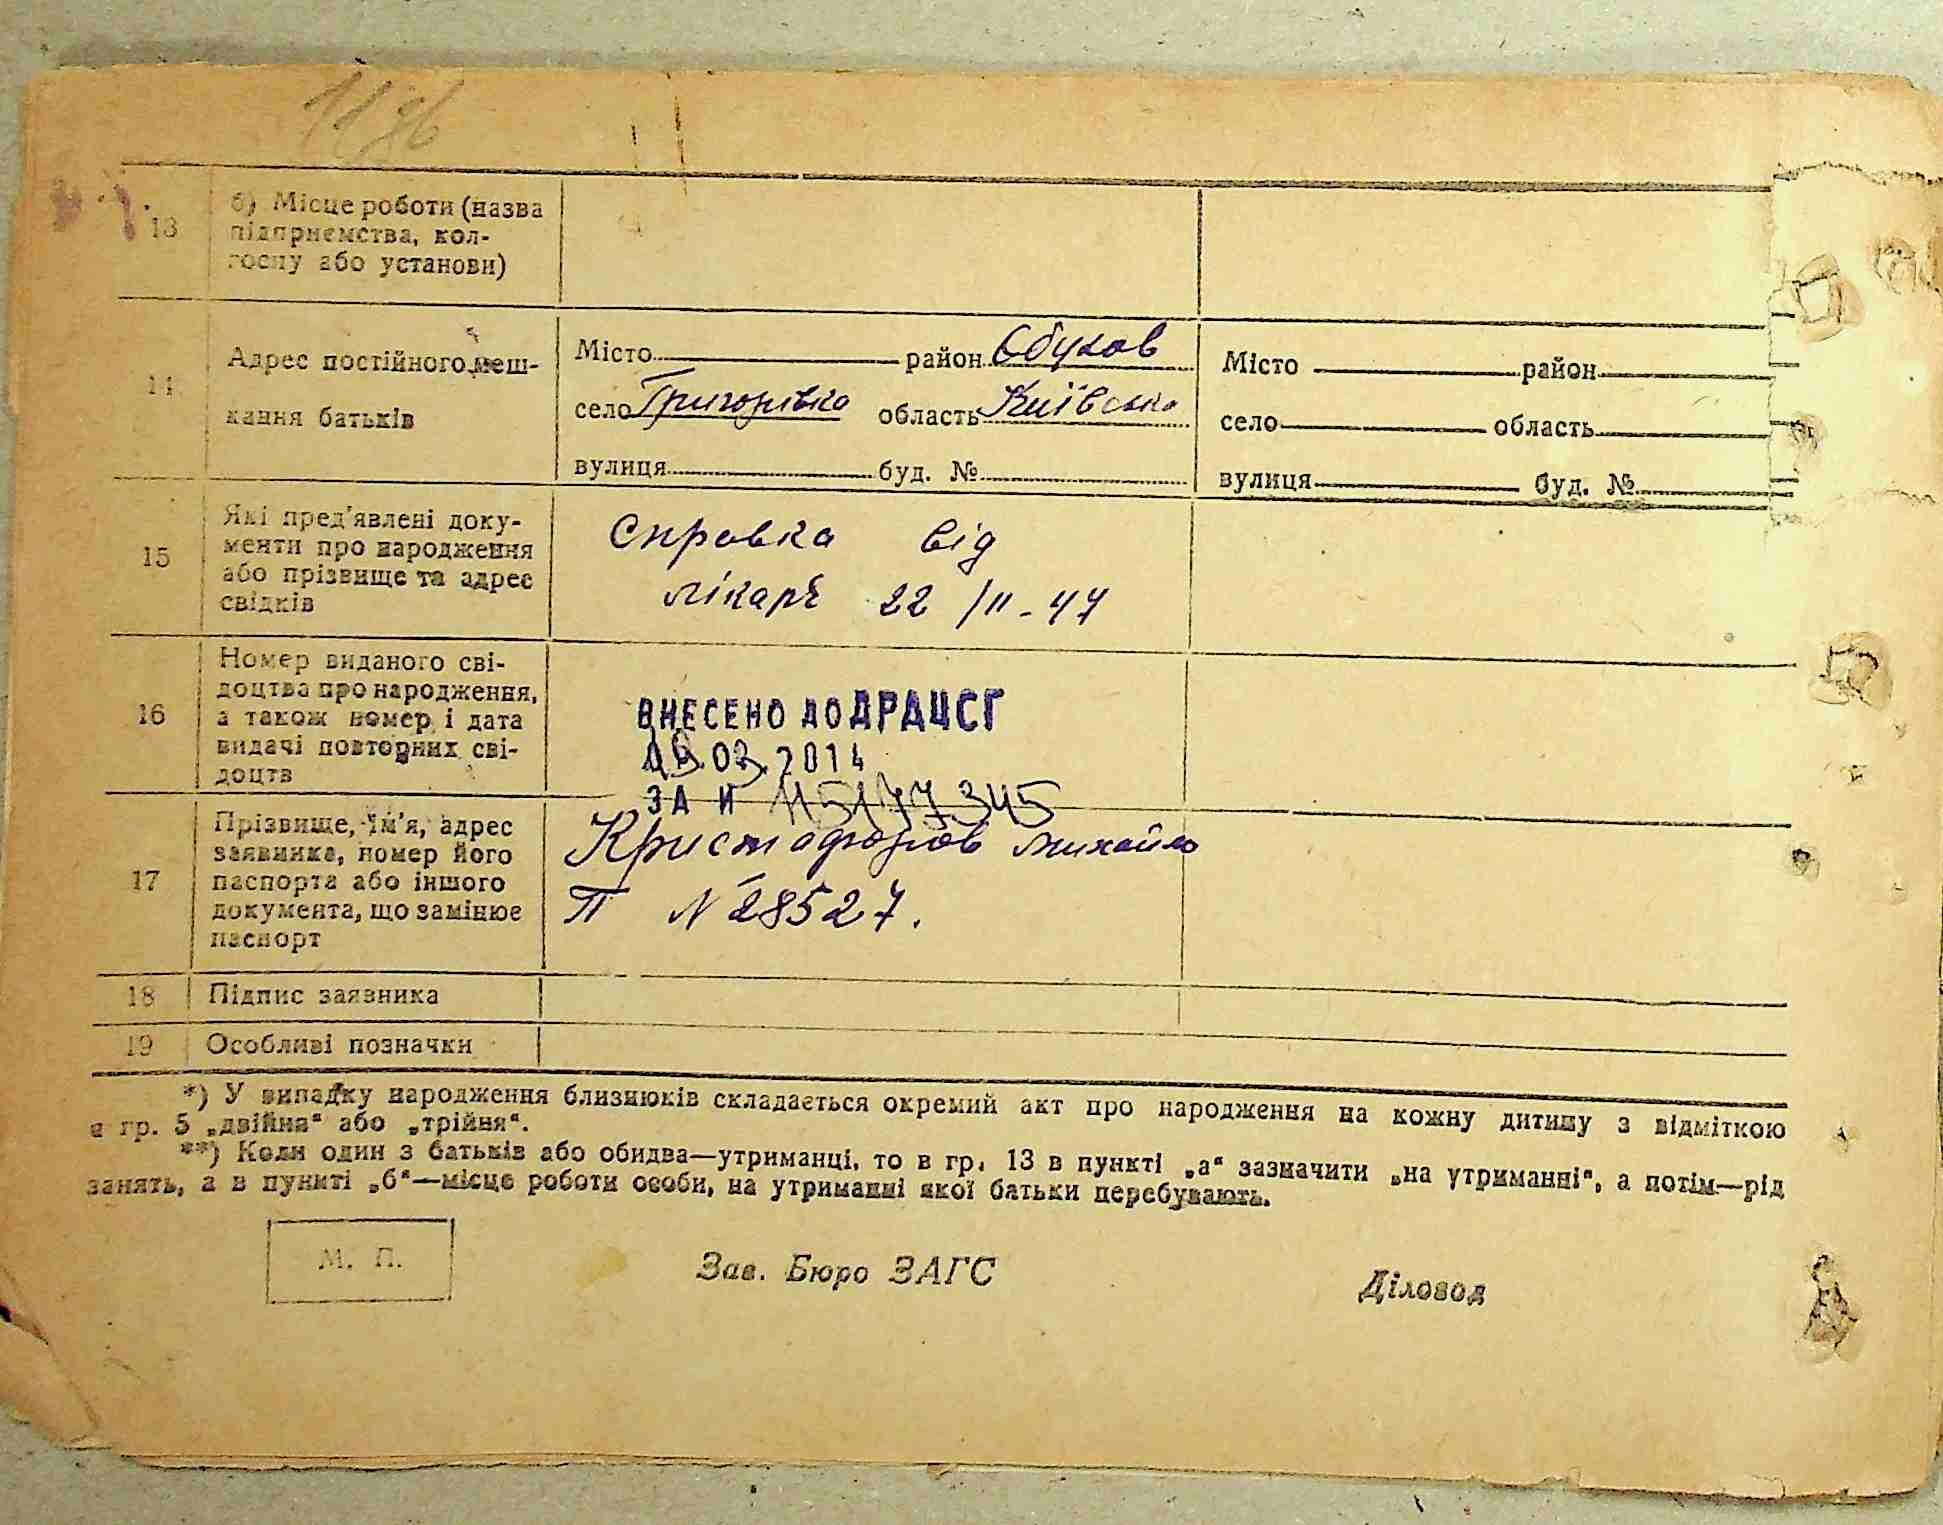 13 б) Місце роботи (назва
підприємства, кол-
госпу або установи)
14 Адрес постійного меш-
кання батьків
Місто район Обухов
село Григорівка область Київська
вулиця буд. №
Місто район
село область
вулиця буд. №
15 Які пред'явлені доку-
менти про народження
або прізвище та адрес
свідків
Справка від
лікаря 22/II-47
16 Номер виданого сві-
доцтва про народження,
а також номер і дата
видачі повторних сві-
доцтв
ВНЕСЕНО ДО ДРАЦСГ
03.2014
ЗА И 115177345
17 Прізвище, ім'я, адрес
заявника, номер його
паспорта або іншого
документа, що замінює
паспорт
Кристафоров Михайло
П № 28527.
18 Підпис заявника
19 Особливі позначки
*) У випадку народження близнюків складається окремий акт про народження на кожну дитину з відміткою
в гр. 5 „двійна“ або „трійня“.
**) Коли один з батьків або обидва—утриманці, то в гр. 13 в пункті „а“ зазначити „на утриманні“, а потім—рід
занять, а в пункті „б“—місце роботи особи, на утриманні якої батьки перебувають.
М. П.
Зав. Бюро ЗАГС
Діловод